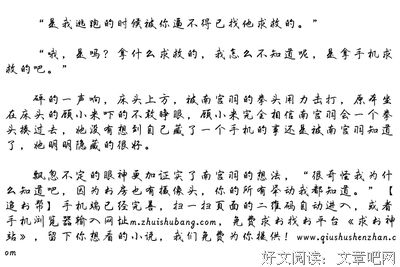 “是我逃跑的时候被你逼不得已找他求救的。”
“哦，是吗？拿什么求救的，我怎么不知道呢，是拿手机求
救的吧。”
砰的一声响，床头上方，被南宫羽的拳头用力击打，原本坐
在床头的顾小米吓的不敢睁眼，顾小米完全相信南宫羽会一个拳
头揍过去，她没有想到自己藏了一个手机的事还是被南宫羽知道
了，她明明隐藏的很好。
飘忽不定的眼神更加证实了南宫羽的想法，“很奇怪我为什
么知道吧，因为书房也有摄像头，你的所有举动我都知道。”【
追书帮】手机端已经完善，扫一扫页面的二维码自动进入，或者
手机浏览器输入网址m.zhuishubang.com，免费求书找书平台《求书神
站》，留下你想看的小说，我们免费为你提供！www.qiushushenzhan.c
om
好文阅读：文章吧网